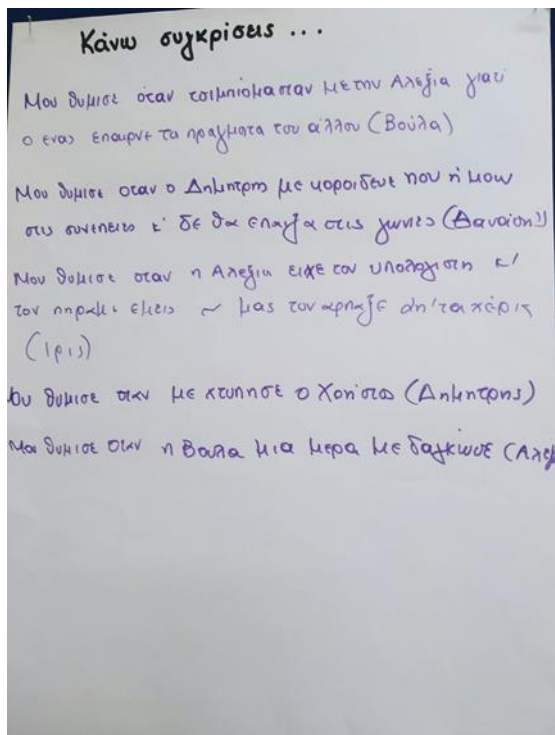 Κάνω συγκρίσεις ...
Μου θυμισε όταν τσιμπιόμασταν με την Αλεξία γιατί
ο ενας επαιρνε τα πραγματα του άλλου (Βούλα)
Μου θυμισε οταν ο Δημητρης με κοροιδευε που ήμουν
στις συνεπειες κ' δε θα επαιζα στις γωνιες (Δαναίση)
Μου θυμισε οταν η Αλεξια ειχε τον υπολογιστη κ'
τον πηραμε εμεις μας τον αρπαξε απ' τα χέρια
(Ιρις)
ου θυμισε οταν με χτυπησε ο Χρηστος (Δημητρης)
Μου θυμισε οταν η Βουλα μια μερα με δαγκωσε (Αλεξ